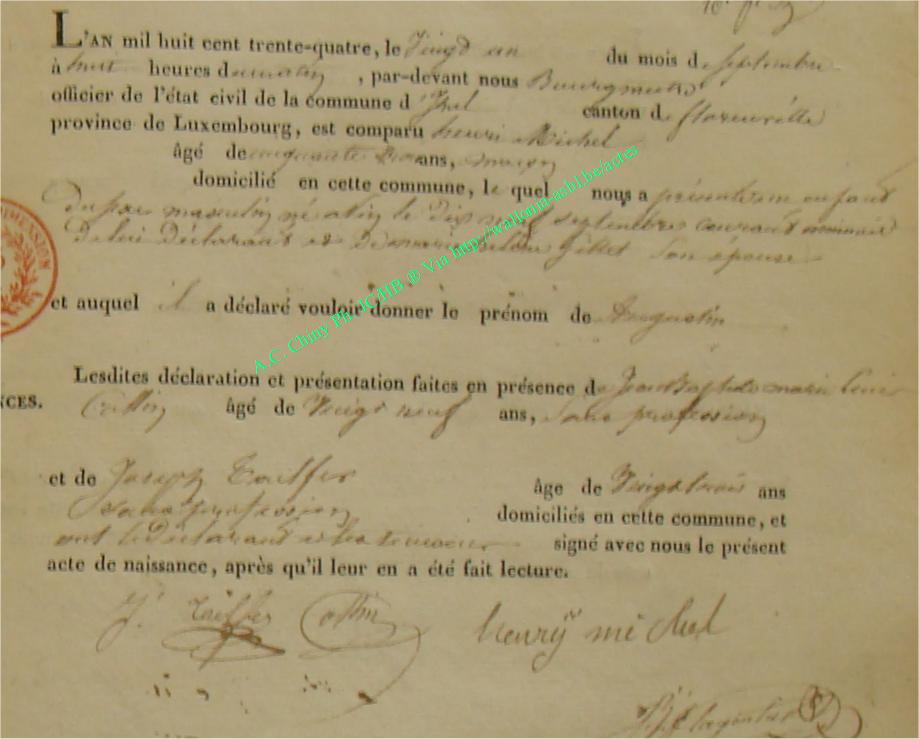 L'AN mil huit cent trente-quatre, le Vingt un du mois d septembre
à huit heures du matin, par-devant nous Bourgmestre
officier de l'état civil de la commune d' Izel canton de florenville
province de Luxembourg, est comparu henri Michel
âgé de cinquante ans,
domicilié en cette commune, le quel nous a présenté un enfant
du sexe masculin né le dix neuf septembre courant
de lui déclarant et de marie Gillet son épouse
et auquel il a déclaré vouloir donner le prénom de Augustin
Lesdites déclaration et présentation faites en présence de Jean Baptiste marie louis
NCES. Collin âgé de Vingt neuf ans, sans profession
et de Joseph Tailfer âge de Vingt trois ans
sans profession domiciliés en cette commune, et
ont le déclarant et les temoins signé avec nous le présent
acte de naissance, après qu'il leur en a été fait lecture.
J. Tailfer Collin henrÿ michel
A.C. Chiny Ph. JCHB ® Via http://wallonia-asbl.be/actes